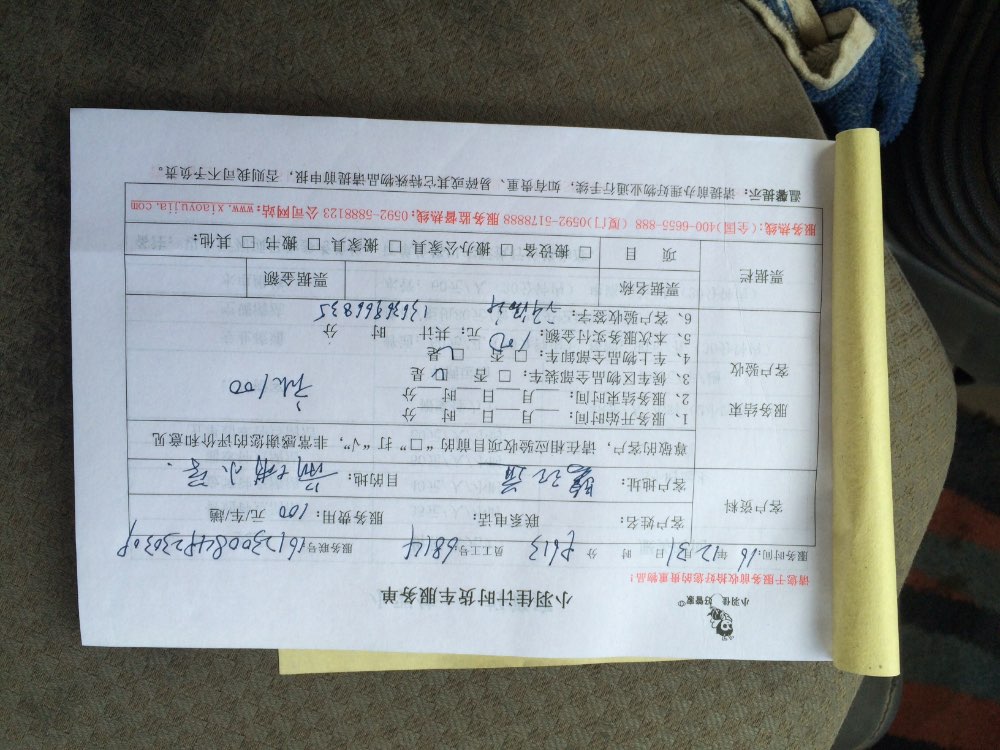 小羽佳 好管家
小羽佳计时货车服务单
请您于服务前收拾好您的贵重物品！
服务时间：16年12月31日 时 分 员工工号 6814 服务联号
客户资料
客户姓名： 联系电话： 服务费用：100 元/车/趟
客户地址： 目的地：
尊敬的客户，请在相应验收项目前的“□”打“√”，非常感谢您的评价和意见
服务结束
客户验收
1、服务开始时间：__月__日__时__分
2、服务结束时间：__月__日__时__分
3、候车区物品全部装车：□ 是 □ 否
4、车上物品全部卸车：□ 是 □ 否
5、本次服务实付金额：100 元；共计 时 分
6、客户验收签字： 13696966835
100
票据栏
票据名称 票据金额
项 目 □ 搬设备 □ 搬办公家具 □ 搬家具 □ 搬书 □ 其他：
服务热线：(全国)400-6655-888 (厦门)0592-5178888 服务监督热线：0592-5888123 公司网站：www.xiaoyujia.com
温馨提示：请提前办理好物业通行手续，如有贵重、易碎或其它特殊物品请提前申报，否则我司不予负责。